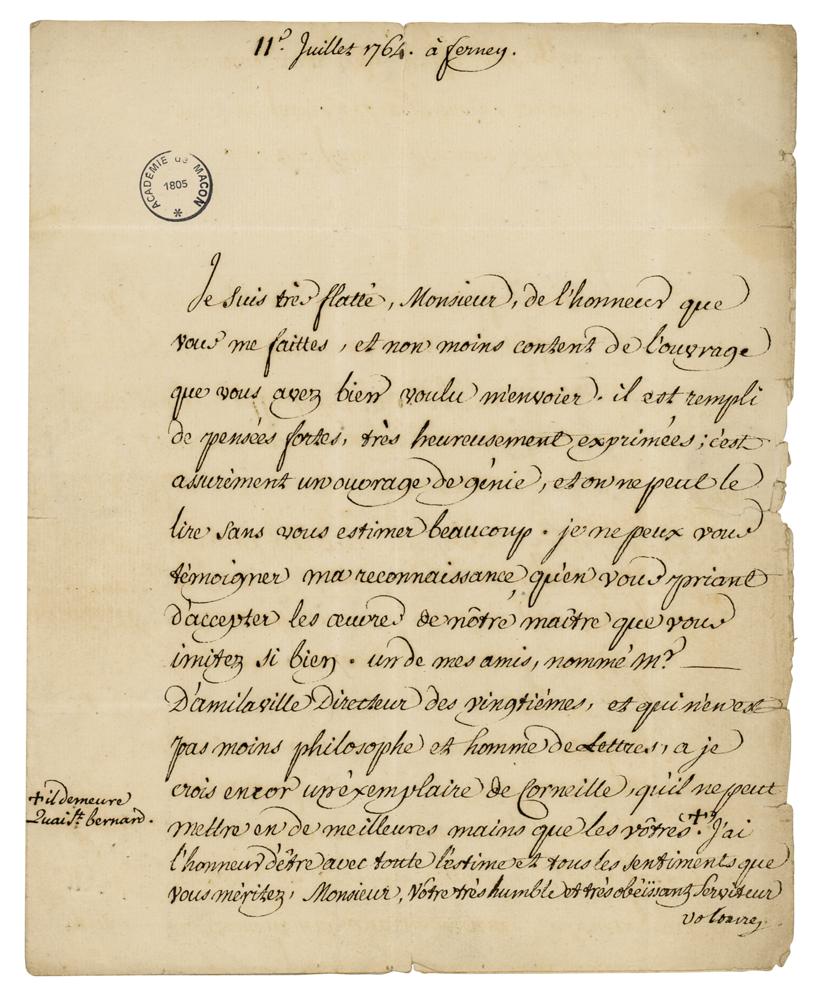 11.e Juillet 1764. à ferney.
ACADÉMIE de MACON
1805
Je suis très flatté, Monsieur, de l'honneur que
vous me faittes, et non moins content de l'ouvrage
que vous avez bien voulu m'envoier. il est rempli
de pensées fortes, très heureusement exprimées; c'est
assurèment un ouvrage de génie, et on ne peut le
lire sans vous estimer beaucoup. je ne peux vous
témoigner ma reconnaissance qu'en vous priant
d'accepter les œuvres de nôtre maître que vous
imitez si bien. un de mes amis, nommé Mr.
D'amilaville Directeur des vingtiémes, et qui n'en est
pas moins philosophe et homme de Lettres, a je
crois encor un éxemplaire de Corneille, qu'il ne peut
mettre en de meilleures mains que les vôtres+. J'ai
l'honneur d'être avec toute l'estime et tous les sentiments que
vous méritez, Monsieur, Votre très humble et très obéïssant Serviteur
voltaire
+ il demeure
Quai St. bernard.